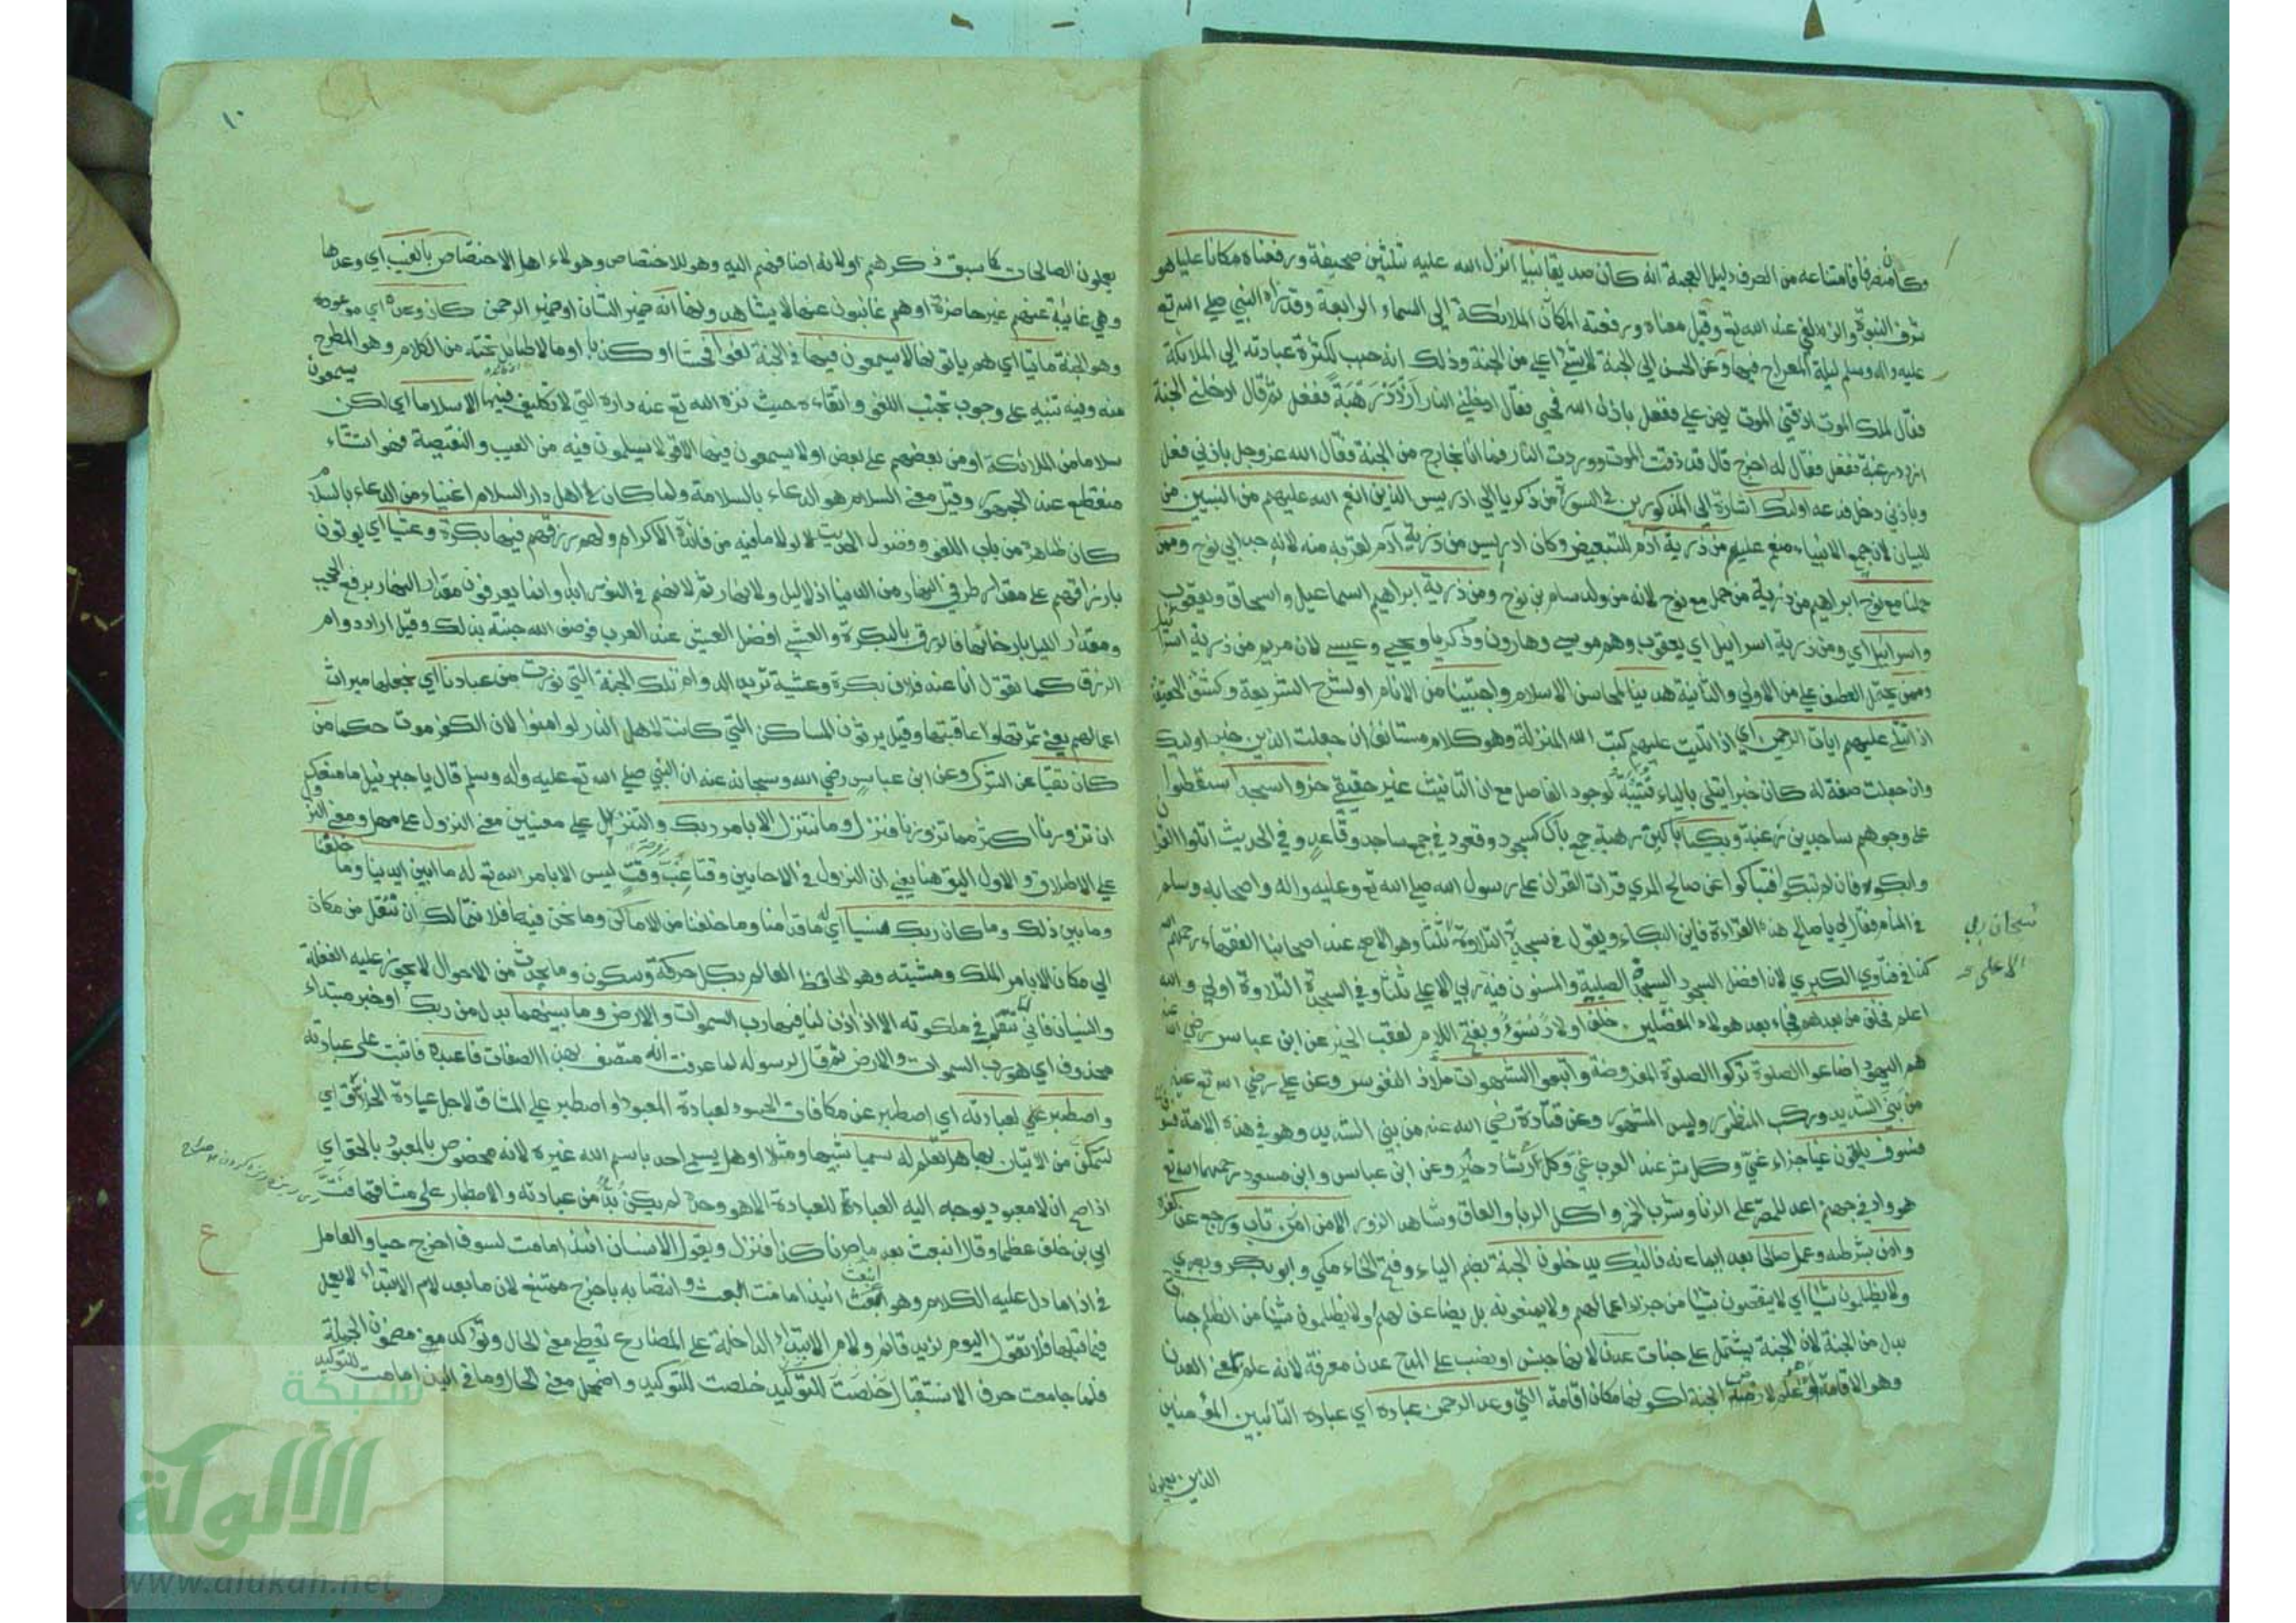 وكان منصرفا فامتناعه من الصرف دليل العجمة انه كان صديقا نبيا انزل الله عليه ثلثين صحيفة ورفعناه مكانا عليا هو
شرف النبوة والزلفي عند الله تع وقيل معناه ورفعته المكان الملائكة الي السماء الرابعة وقد رآه النبي صلي الله تع
عليه واله وسلم ليلة المعراج فيها وعن الحسن الي الجنة لا شئ اعلي من الجنة وذلك انه حبب لكثرة عبادته الي الملائكة
فقال لملك الموت اذقني الموت يهن علي ففعل باذن الله فحيي فقال ادخلني النار ازدد رهبة ففعل ثم قال ادخلني الجنة
ازدد رغبة ففعل فقال له اخرج قال قد ذقت الموت ووردت النار فما انا بخارج من الجنة فقال الله عز وجل باذني فعل
وباذني دخل فدعه اولئك اشارة الي المذكورين في السورة من زكريا الي ادريس الذين انعم الله عليهم من النبيين من
للبيان لان جميع الانبياء منعم عليهم من ذرية آدم للتبعيض وكان ادريس من ذرية آدم لقربه منه لانه جد ابي نوح وممن
حملنا مع نوح ابراهيم من ذرية من حمل مع نوح لانه من ولد سام بن نوح ومن ذرية ابراهيم اسماعيل واسحاق ويعقوب
واسرائيل اي ومن ذرية اسرائيل اي يعقوب وهم موسي وهارون وزكريا ويحيي وعيسي لان مريم من ذرية اسرائيل
وممن يحتمل العطف علي من الاولي والثانية هدينا لمحاسن الاسلام واجتبينا من الانام او لشرح الشريعة وكشف الحقيقة
اذا تتلي عليهم ايات الرحمن اي اذا تليت عليهم كتب الله المنزلة وهو كلام مستانف ان جعلت الذين خبر اولئك
وان جعلت صفة له كان خبرا يتلي بالياء قتيبة لوجود الفاصل مع ان التانيث غير حقيقي خروا سجدا سقطوا
علي وجوههم ساجدين رغبة وبكيا باكين رهبة جمع باك كسجود وقعود في جمع ساجد وقاعد وفي الحديث اتلوا القران
وابكوا فان لم تبكوا فتباكوا عن صالح المري قرات القران علي رسول الله صلي الله تع وعليه واله واصحابه وسلم
في المنام فقال لي يا صالح هذه القراءة فاين البكاء ويقول في سجدة التلاوة ثلثا وهو الاصح عند اصحابنا الفقهاء رحمهم الله
سبحان ربي
الاعلي
كذا في فتاوي الكبري لان افضل السجود السجدة الصلبية والمسنون فيه ربي الاعلي ثلثا وفي السجدة التلاوة اولي والله
اعلم فخلف من بعدهم فجاء بعد هولاء المفضلين خلف اولاد سوء وبفتح اللام لعقب الخير عن ابن عباس رضي الله عنه
هم اليهود اضاعوا الصلوة تركوا الصلوة المفروضة واتبعوا الشهوات ملاذ النفوس وعن علي رضي الله تع عنه
من بني الشديد وركب المنظور ولبس المشهور وعن قتادة رضي الله عنه من بني الشديد وهو في هذه الامة
فسوف يلقون غيا جزاء غي وكل شر عند العرب غي وكل رشاد خير وعن ابن عباس وابن مسعود رحمهما الله تع
هو واد في جهنم اعد للمصر علي الزنا وشرب الخمر واكل الربا والعاق وشاهد الزور الا من امن تاب ورجع عن كفره
وامن بشرطه وعمل صالحا بعد ايمانه فاولئك يدخلون الجنة بضم الياء وفتح الخاء مكي وابو بكر وبصري
ولا يظلمون شيئا اي لا ينقصون شيئا من جزاء اعمالهم ولا يمنعونه بل يضاعف لهم او لا يظلمون شيئا من الظلم جنات
بدل من الجنة لان الجنة يشتمل علي جنات عدن لانها جنس او نصب علي المدح عدن معرفة لانه علم لمعني العدن
وهو الاقامة او علم لارض الجنة لكونها مكان اقامة التي وعد الرحمن عباده اي عباده التائبين المؤمنين
الذين يعملون
١٠
يعملون الصالحات كما سبق ذكرهم او لانه اضافهم اليه وهو للاختصاص وهولاء اهل الاختصاص بالغيب اي وعدها
وهي غائبة عنهم غير حاضرة او هم غائبون عنها لا يشاهدونها انه ضمير الشان او ضمير الرحمن كان وعده اي موعوده
وهو الجنة ماتيا اي هم ياتونها لا يسمعون فيها في الجنة لغوا فحشا او كذبا او ما لا طائل تحته من الكلام وهو المطرح
منه وفيه تنبيه علي وجوب تجنب اللغو واتقاءه حيث نزه الله تع عنه داره التي لا تكليف فيها الا سلاما اي لكن يسمعون
سلاما من الملائكة او من بعضهم علي بعض او لا يسمعون فيها الا قولا يسلمون فيه من العيب والنقيصة فهو استثناء
منقطع عند الجمهور وقيل معني السلام هو الدعاء بالسلامة ولما كان في اهل دار السلام اغنياء من الدعاء بالسلام
كان ظاهره من باب اللغو وفضول الحديث لولا ما فيه من فائدة الاكرام ولهم رزقهم فيها بكرة وعشيا اي يوتون
بارزاقهم علي مقدار طرفي النهار من الدنيا اذ لا ليل ولا نهار ثم لانهم في النور ابدا وانما يعرفون مقدار النهار برفع الحجب
ومقدار الليل بارخائها فالرزق بالبكرة والعشي افضل العيش عند العرب فوصف الله جنته بذلك وقيل اراد دوام
الرزق كما تقول انا عند فلان بكرة وعشية تريد الدوام تلك الجنة التي نورث من عبادنا اي نجعلها ميراث
اعمالهم يعني ثمرتها وعاقبتها وقيل يرثون المساكن التي كانت لاهل النار لو امنوا لان الكفر موت حكما من
كان تقيا عن الشرك وعن ابن عباس رضي الله وسبحانه عنه ان النبي صلي الله تع عليه واله وسلم قال يا جبرئيل ما منعك
ان تزورنا اكثر مما تزورنا فنزل وما نتنزل الا بامر ربك والتنزل علي معنيين معني النزول علي مهل ومعني النزول
علي الاطلاق والاول اليق هنا يعني ان النزول في الاحايين وقتا غب وقت ليس الا بامر الله تع له ما بين ايدينا وما خلفنا
وما بين ذلك وما كان ربك نسيا اي له ما قدامنا وما خلفنا من الاماكن وما نحن فيها فلا نتمالك ان ننتقل من مكان
الي مكان الا بامر الملك ومشيته وهو الحافظ العالم بكل حركة وسكون وما يحدث من الاحوال لا يجوز عليه الغفلة
والنسيان فاني لنا نتقلب في ملكوته الا اذا اذن لنا فيها رب السموات والارض وما بينهما بدل من ربك او خبر مبتداء
محذوف اي هو رب السموات والارض ثم قال لرسوله لما عرفت انه متصف بهذه الصفات فاعبده فاثبت علي عبادته
واصطبر علي لعبادته اي اصطبر عن مكافات الحسود لعبادة المعبود واصطبر علي المشاق لاجل عبادة الخلاق اي
لتتمكن من الاتيان بها هل تعلم له سميا شبيها ومثلا او هل يسمي احد باسم الله غيره لانه مخصوص بالمعبود بالحق اي
اذا صح ان لا معبود يوجه اليه العباد العبادة الا هو وحده لم يكن بد من عبادته والاصطبار علي مشاقها فتت
ابي بن خلف عظما وقال انبعث بعد ما صرنا كذا فنزل ويقول الانسان ائذا مامت لسوف اخرج حيا والعامل
في اذا ما دل عليه الكلام وهو ابعث اي ائذا ما مت ابعث وانتصابه باخرج ممتنع لان ما بعد لام الابتداء لا يعمل
فيما قبلها فلا تقول اليوم لزيد قائم ولام الابتداء الداخلة علي المضارع تعطي معني الحال وتؤكد معني مضمون الجملة
فلما جامعت حرف الاستقبال خلصت للتوكيد واضمحل معني الحال وما في ائذا مامت للتوكيد